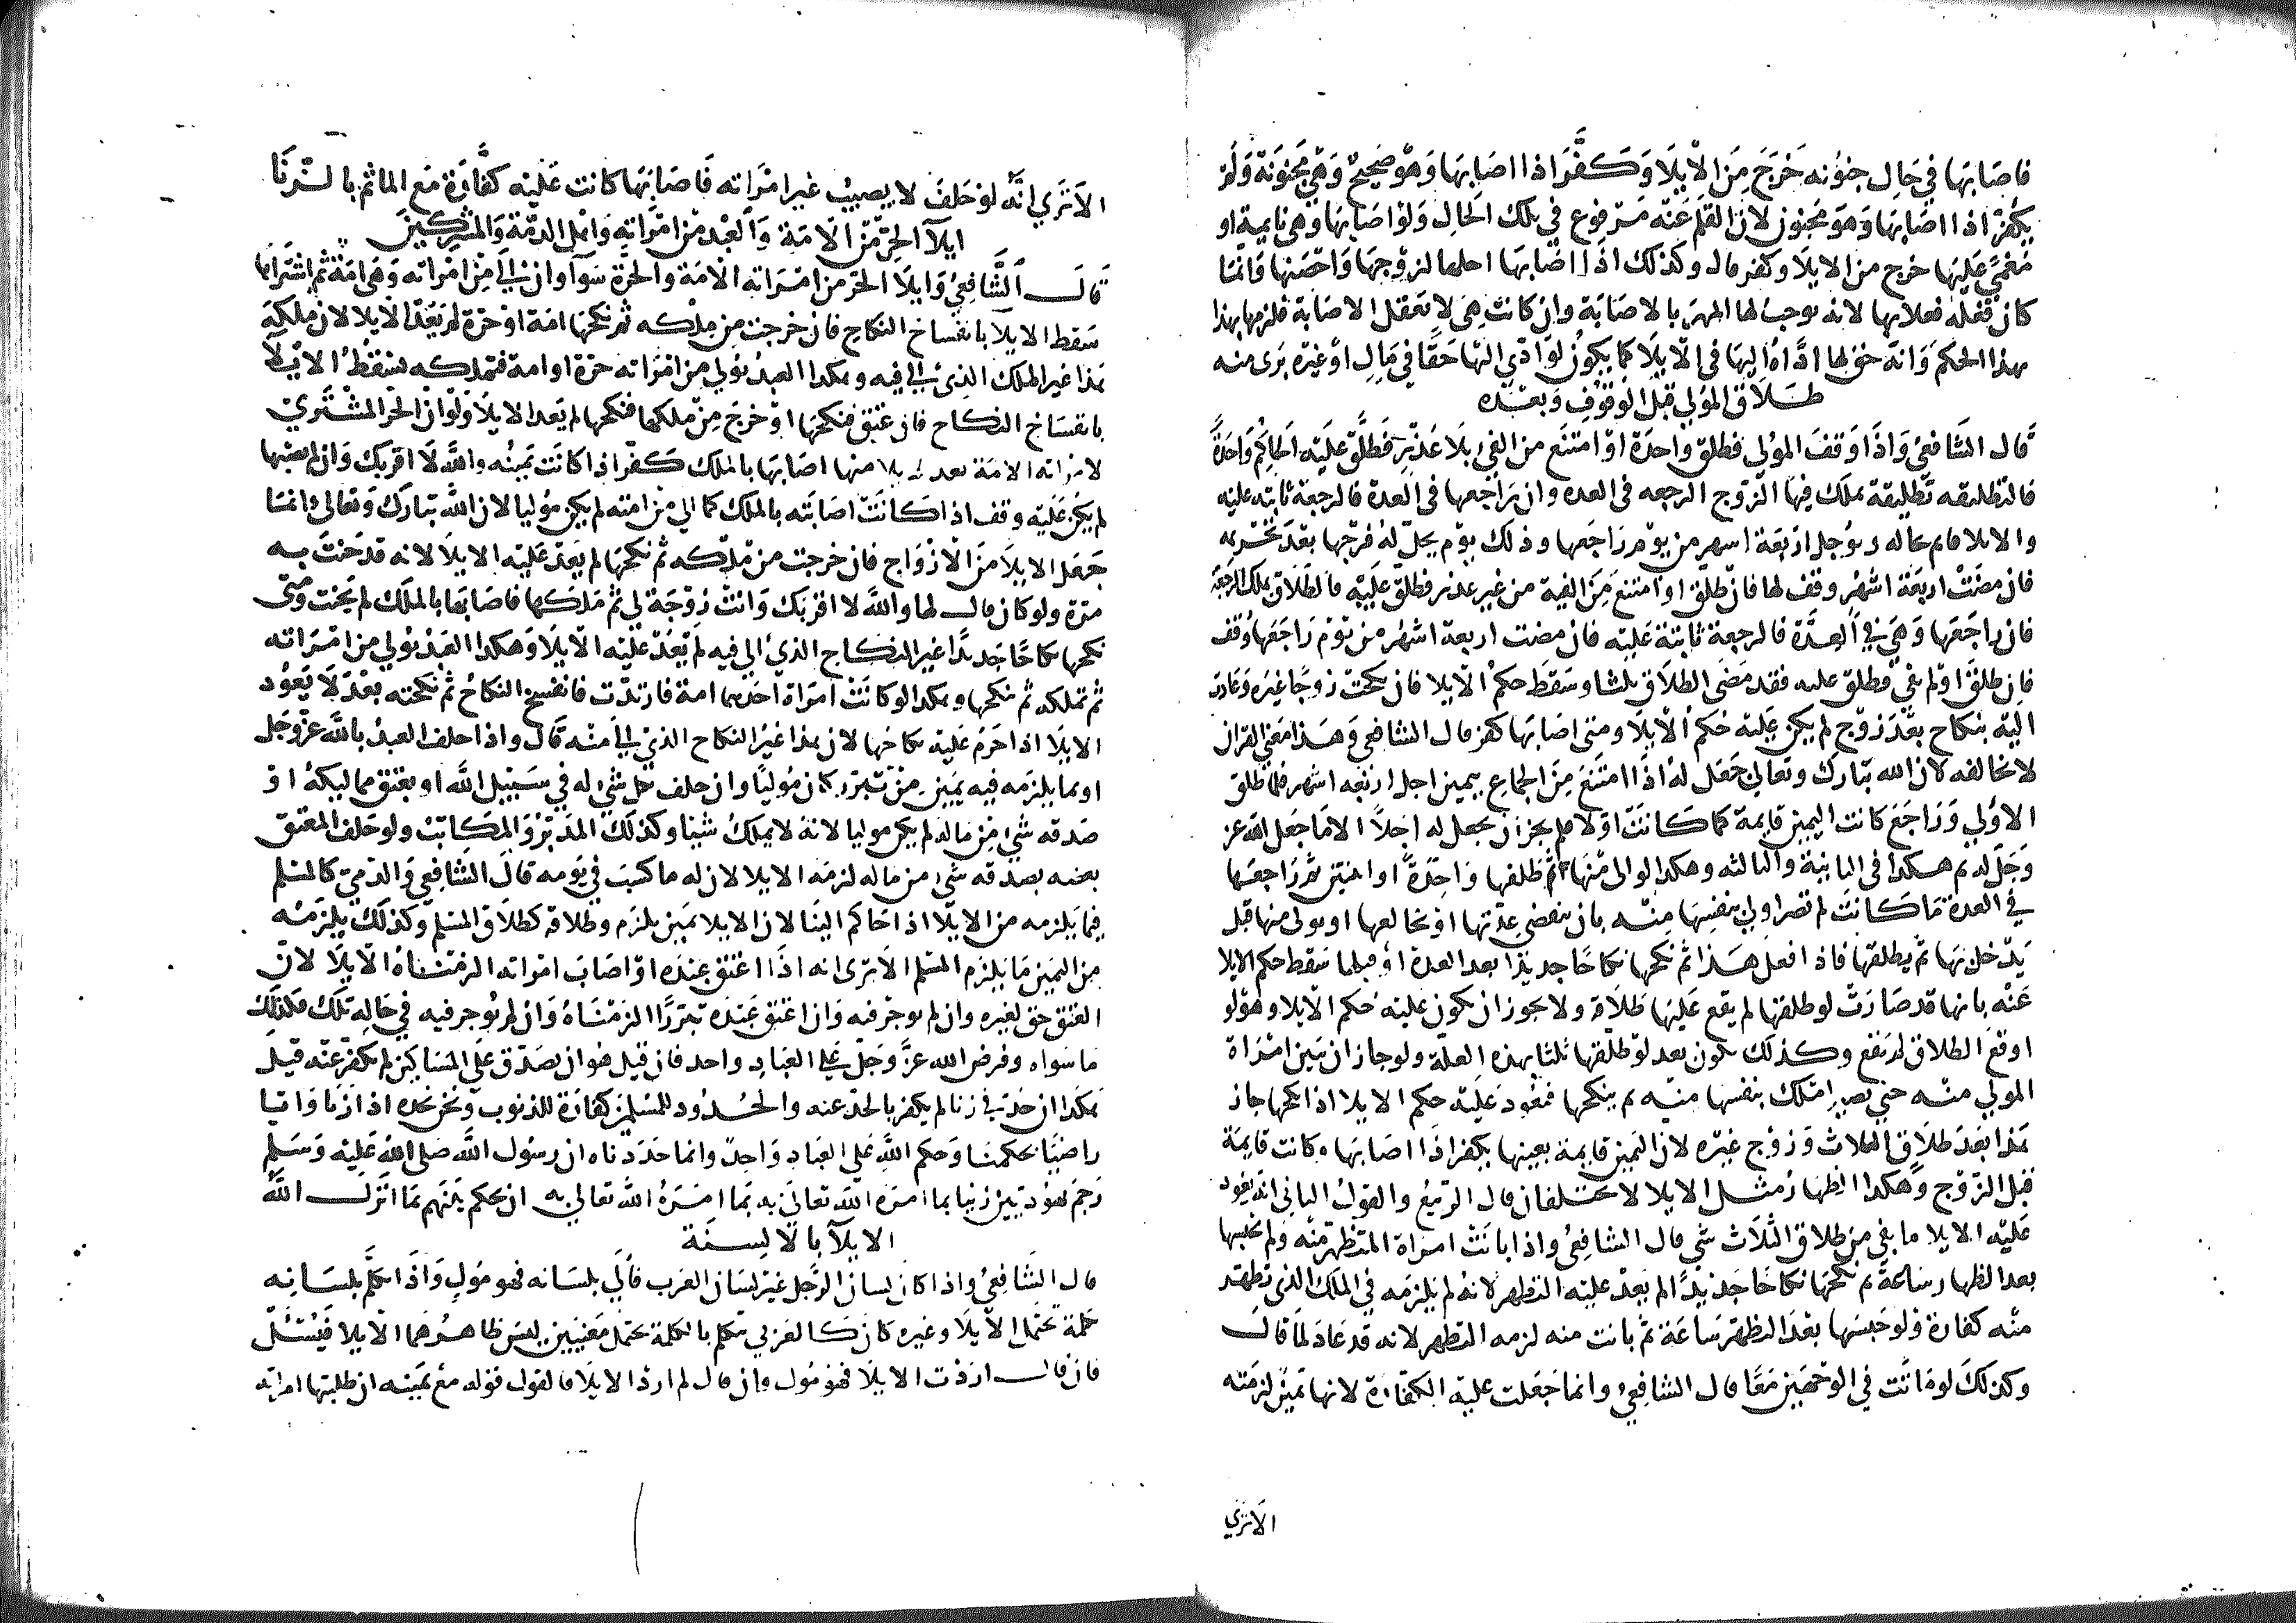 فاصابها في حال جنونه خرج من الايلا وكفر اذا اصابها وهو صحيح وهي مجنونة ولو
يكفر اذا اصابها وهو مجنون لان القلم عنه مرفوع في تلك الحال ولو اصابها وهي نايمة او
مغمى عليها خرج من الايلا وكفر قال وكذلك اذا اصابها احلها لزوجها واحصنها وانما
كان فعله فعلا بها لانه يوجب لها المهر بالاصابة وان كانت هي لا تعقل الاصابة فلزمها بهذا
بهذا الحكم وانه حق لها اداه اليها في الايلا كما يكون لو ادى اليها حقا في مال او غيره برى منه
طلاق المولي قبل الوقوف وبعده
قال الشافعي واذا اوقف المولي فطلق واحدة او امتنع من الفي بلا عذر فطلق عليه الحاكم واحدة
فالتطليقه تطليقة يملك فيها الزوج الرجعه في العده وان راجعها في العدة فالرجعة ثابته عليه
والايلا قايم بحاله ويوجل اربعة اشهر من يوم راجعها وذلك يوم يحل له فرجها بعد تحريمه
فان مضت اربعة اشهر وقف لها فان طلق او امتنع من الفية من غير عذر فطلق عليه فالطلاق يملك الرجعة
فان راجعها وهي في العدة فالرجعة ثابتة عليه فان مضت اربعة اشهر من يوم راجعها وقف
فان طلق او لم يفي فطلق عليه فقد مضى الطلاق ثلثا وسقط حكم الايلا فان نكحت زوجا غيره وعادت
اليه بنكاح بعد زوج لم يكن عليه حكم الايلا ومتى اصابها كفر قال الشافعي وهذا معنى القران
لا نخالفه لان الله تبارك وتعالى جعل له اذا امتنع من الجماع بيمين اجل اربعه اشهر فلما طلق
الاولى وراجع كانت اليمين قايمة كما كانت اولا فلم يجز ان يجعل له اجلا الا ما جعل الله عز
وجل له ثم هكذا في الثانية والثالثه وهكذا لو الى منها ثم طلقها واحدة او اثنتين ثم راجعها
في العدة ما كانت لم تصر اولى بنفسها منه بان تنقضي عدتها او يخالعها او يولى منها قبل
يدخل بها ثم يطلقها فاذا فعل هذا ثم نكحها نكاحا جديدا بعد العدة او قبلها سقط حكم الايلا
عنه بانها قد صارت لو طلقها لم يقع عليها طلاقه ولا يجوز ان يكون عليه حكم الايلا وهو لو
اوقع الطلاق لم يقع وكذلك يكون بعد لو طلقها ثلثا بهذه العلة ولو جاز ان تبين امراة
المولي منه حتى تصير املك بنفسها منه ثم ينكحها فيعود عليه حكم الايلا اذا نكحها جاز
هذا بعد طلاق الثلاث وزوج غيره لان اليمين قايمة بعينها يكفر اذا اصابها وكانت قايمة
قبل الزوج وهكذا الظهار مثل الايلا لا يختلفان قال الربيع والقول الثاني انه يعود
عليه الايلا ما بقي من طلاق الثلاث شي قال الشافعي واذا بانت امراة المتظهر منه ولم يحبسها
بعد الظهار ساعة ثم نكحها نكاحا جديدا لم يعد عليه التظهر لانه لم يلزمه في الملك الذي تظهر
منه كفارة ولو حبسها بعد التظهر ساعة ثم بانت منه لزمه التظهر لانه قد عاد لما قال
وكذلك لو ماتت في الوجهين معا قال الشافعي وانما جعلت عليه الكفارة لانها يمين لزمته
الا ترى
الا ترى انه لو حلف لا يصيب غير امراته فاصابها كانت عليه كفارة مع الماثم بالزنا
ايلا الحر من الامة والعبد من امراته واهل الذمة والمشركين
قال الشافعي وايلا الحر من امراته الامة والحرة سوآ وان الى من امراته وهي امة ثم اشتراها
سقط الايلا بانفساخ النكاح فان خرجت من ملكه ثم نكحها امة او حرة لم يعد الايلا لان ملكه
هذا غير الملك الذي الى فيه وهكذا العبد يولي من امراته حرة او امة فتملكه يسقط الايلا
بانفساخ النكاح فان عتق فنكحها او خرج من ملكها فنكحها لم يعد الايلا ولو ان الحر المشتري
لامراته الامة بعد الايلا منها اصابها بالملك كفر اذا كانت يمينه والله لا اقربك وان لم يصبها
لم يكن عليه وقف اذا كانت اصابته بالملك كما الى من امته لم يكن موليا لان الله تبارك وتعالى انما
جعل الايلا من الازواج فان خرجت من ملكه ثم نكحها لم يعد عليه الايلا لانه قد حنث به
مرة ولو كان قال لها والله لا اقربك وانت زوجة لي ثم ملكها فاصابها بالملك لم يحنث ومتى
نكحها نكاحا جديدا غير النكاح الذي الى فيه لم يعد عليه الايلا وهكذا العبد يولي من امراته
ثم تملكه ثم ينكحها وهكذا لو كانت امراة احدهما امة فارتدت فانفسخ النكاح ثم نكحته بعد لا يعود
الايلا اذا حرم عليه نكاحها لان هذا غير النكاح الذي الى منه قال واذا حلف العبد بالله عز وجل
او بما يلزمه فيه يمين من تبرر كان موليا وان حلف كل شي له في سبيل الله او بعتق مماليكه او
صدقه شي من ماله لم يكن موليا لانه لا يملك شيا وكذلك المدبر والمكاتب ولو حلف المعتق
بعضه بصدقه شي من ماله لزمه الايلا لان له ما كسب في يومه قال الشافعي والذمي كالمسلم
فيما يلزمه من الايلا اذا حاكم الينا لان الايلا يمين يلزم وطلاق كطلاق المسلم وكذلك يلزمه
من اليمين ما يلزم المسلم الا ترى انه اذا اعتق عبده او اصاب امراته الزمناه الايلا لان
العتق حق لغيره وان لم يوجر فيه وان اعتق عبده تبررا الزمناه وان لم يوجر فيه في حاله تلك فكذلك
ما سواه وفرض الله عز وجل على العباد واحد فان قيل فهو ان تصدق على المساكين لم يكفر عنه قيل
هكذا ان حد في زنا لم يكفر بالحد عنه والحدود للمسلمين كفارة للذنوب ونحن نحده اذا زنا واتيا
راضيا بحكمنا وحكم الله على العباد واحد وانما حددناه ان رسول الله صلى الله عليه وسلم
رجم يهوديين زنيا بما امره الله تعالى به بما امره الله تعالى به ان يحكم بينهم بما انزل الله
الايلا بالالسنة
قال الشافعي واذا كان لسان الرجل غير لسان العرب فالى بلسانه فهو مول واذا تكلم بلسانه
كلمة تحتمل الايلا وغيره كان كالعربي تكلم بالكلمة تحتمل معنيين ليس ظاهرهما الايلا فيسئل
فان قال اردت الايلا فهو مول وان قال لم ارد الايلا فالقول قوله مع يمينه ان طلبتها امراته